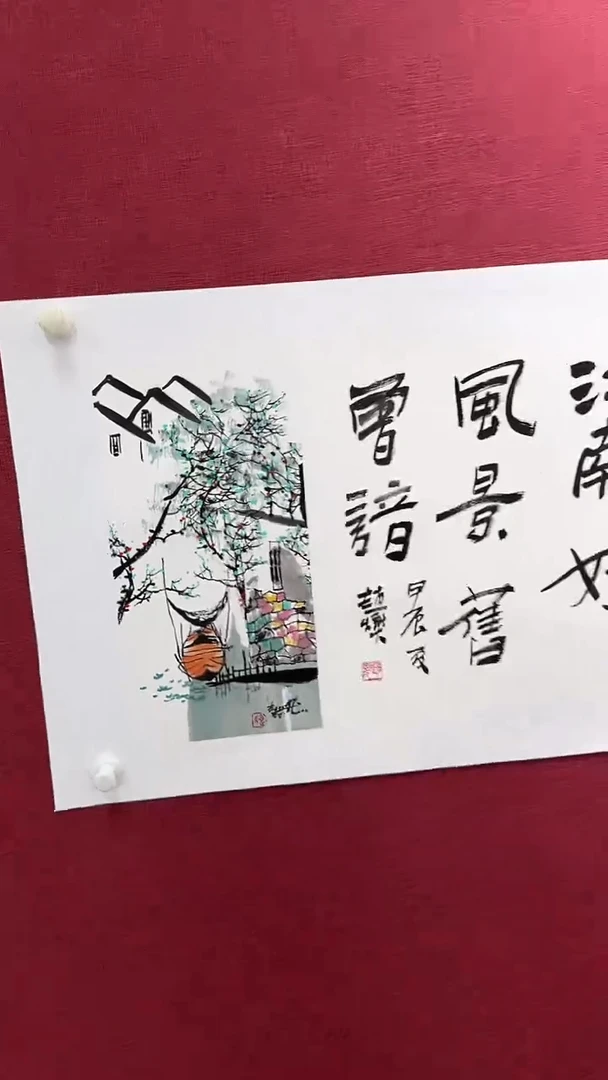 江南好
風景舊
曾諳
甲辰夏